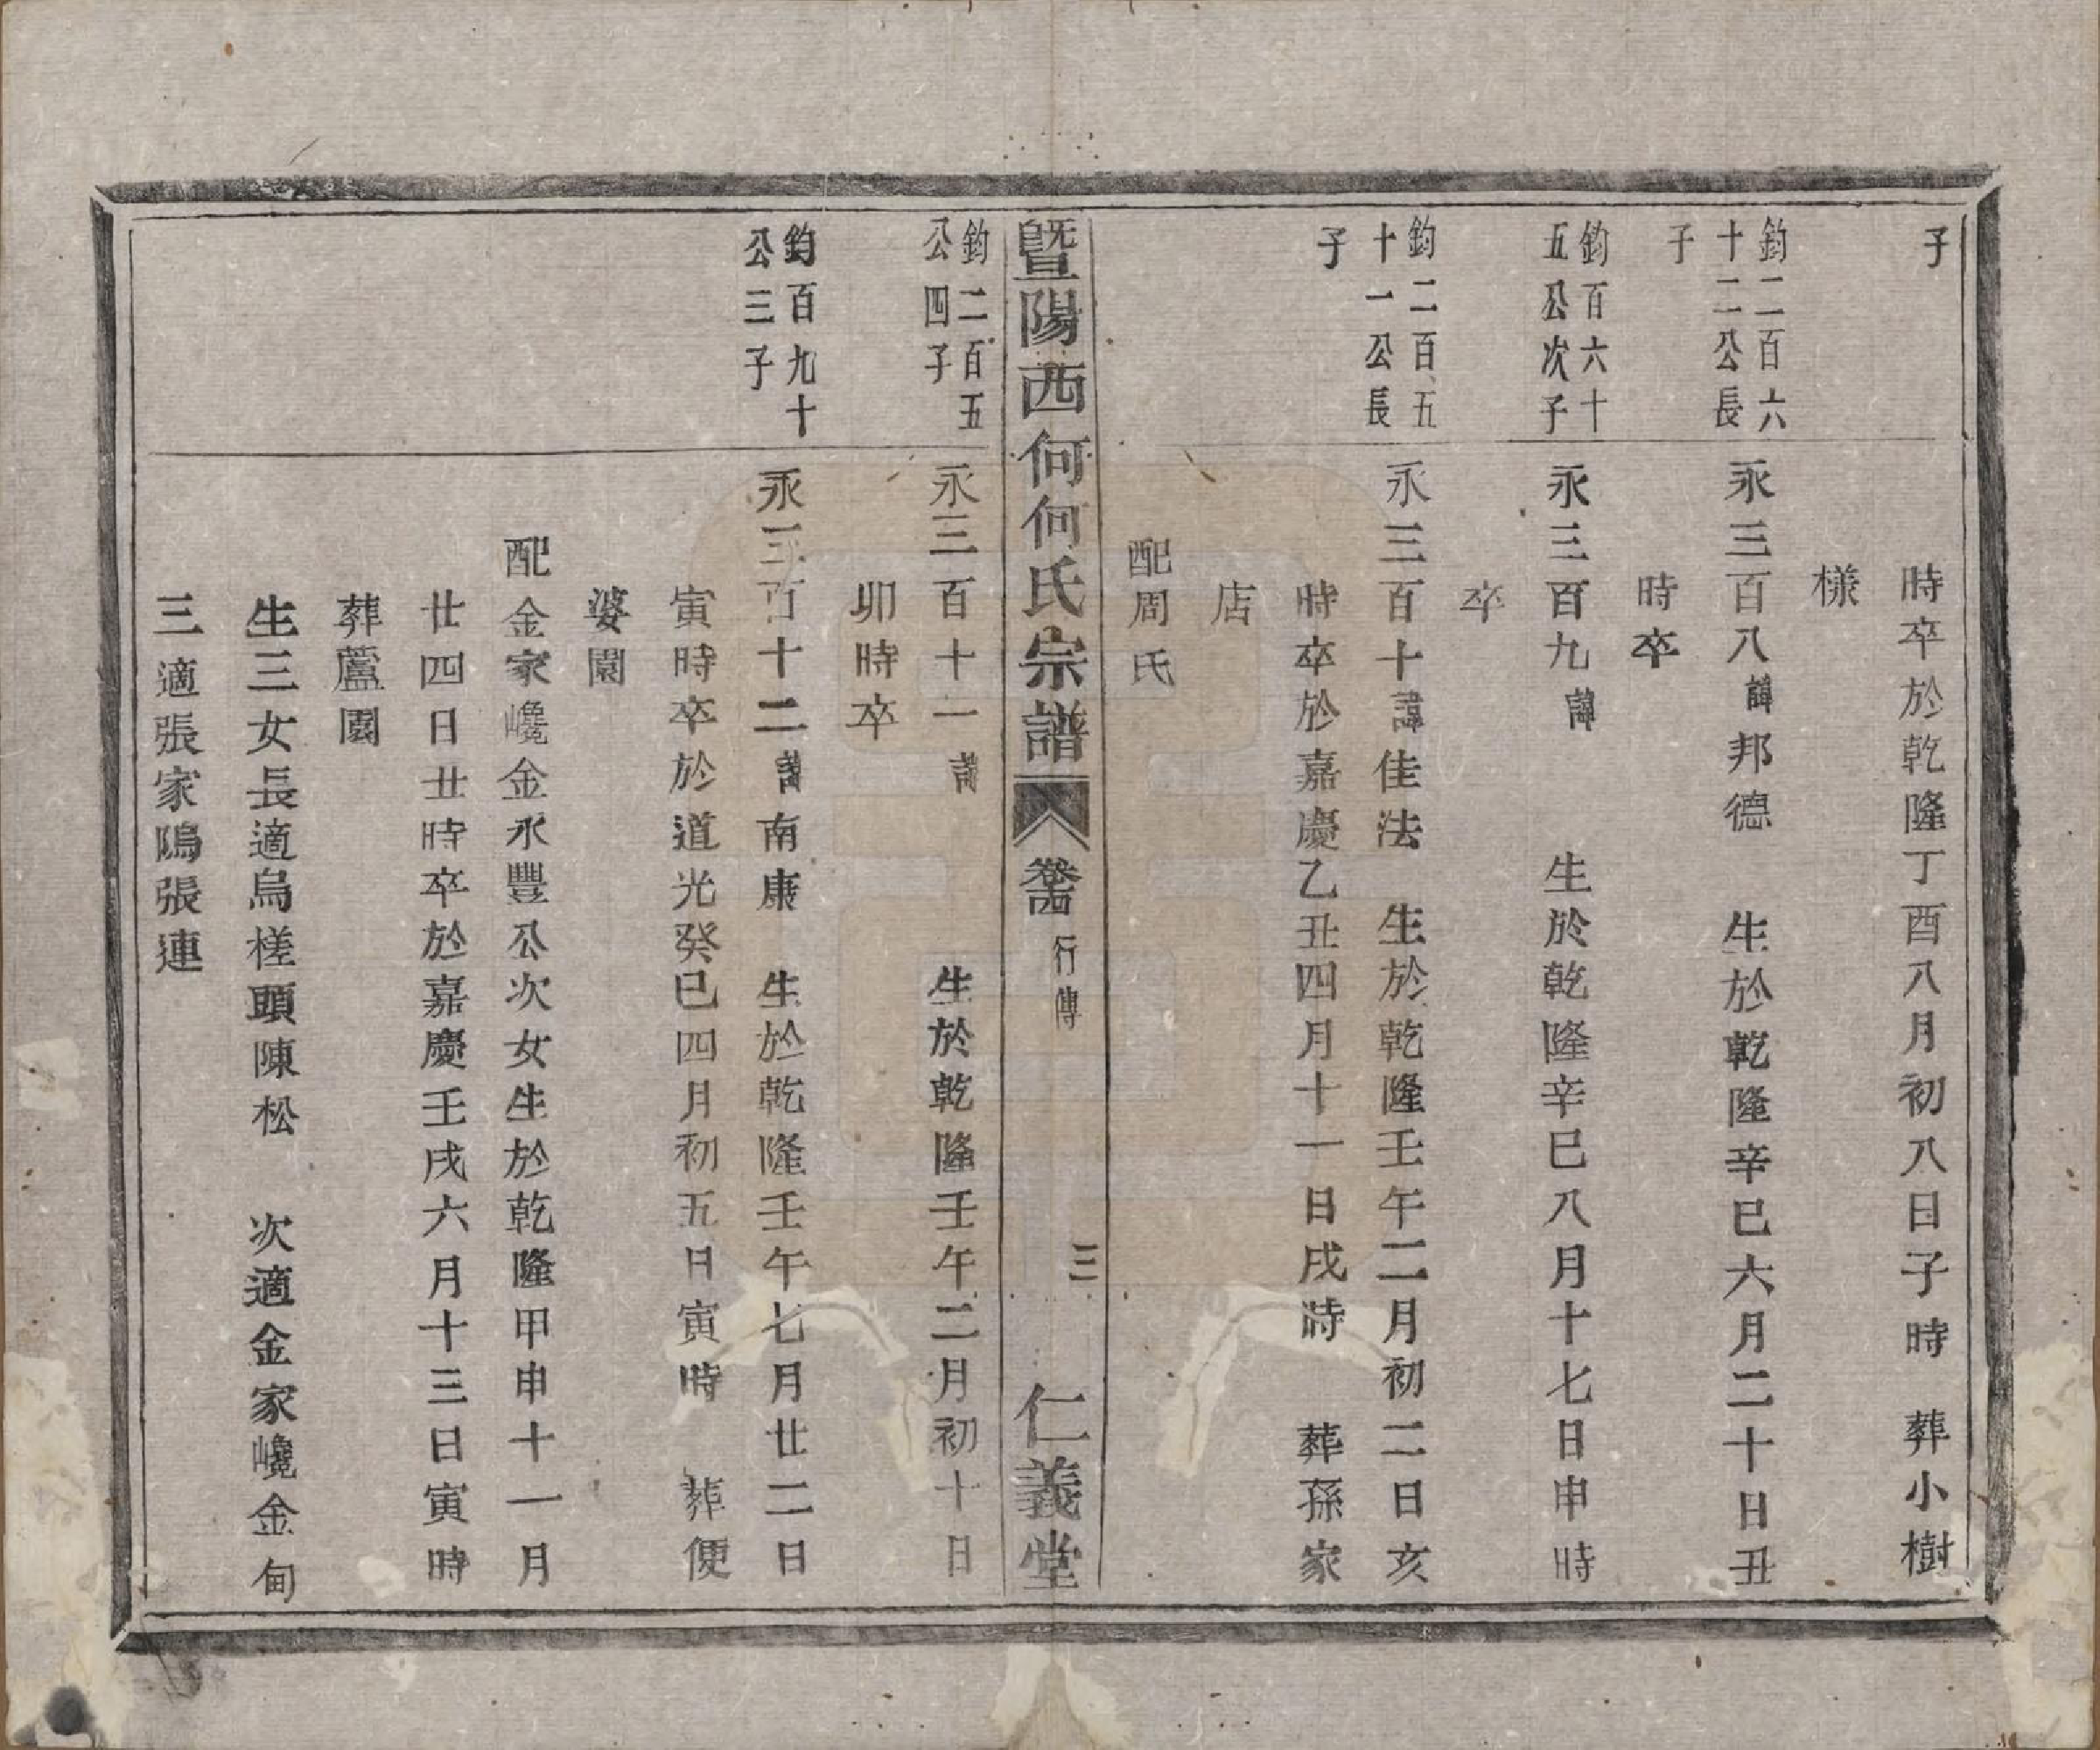 子
時卒於乾隆丁酉八月初八日子時 葬小樹
樣
鈞二百六
十二公長
子
永三百八諱邦德 生於乾隆辛巳六月二十日丑
時卒
鈞百六十
五公次子
永三百九諱 生於乾隆辛巳八月十七日申時
卒
鈞二百五
十一公長
子
永三百十諱佳法 生於乾隆壬午二月初二日亥
時卒於嘉慶乙丑四月十一日戌時 葬孫家
店
配周氏
暨陽西何何氏宗譜 卷四 行傳 三 仁義堂
鈞二百五
公四子
永三百十一諱 生於乾隆壬午二月初十日
卯時卒
鈞百九十
公三子
永三百十二諱南康 生於乾隆壬午七月廿二日
寅時卒於道光癸巳四月初五日寅時 葬便
婆園
配金家巉金永豐公次女生於乾隆甲申十一月
廿四日丑時卒於嘉慶壬戌六月十三日寅時
葬蘆園
生三女長適烏槎頭陳松 次適金家巉金甸
三適張家鳴張連